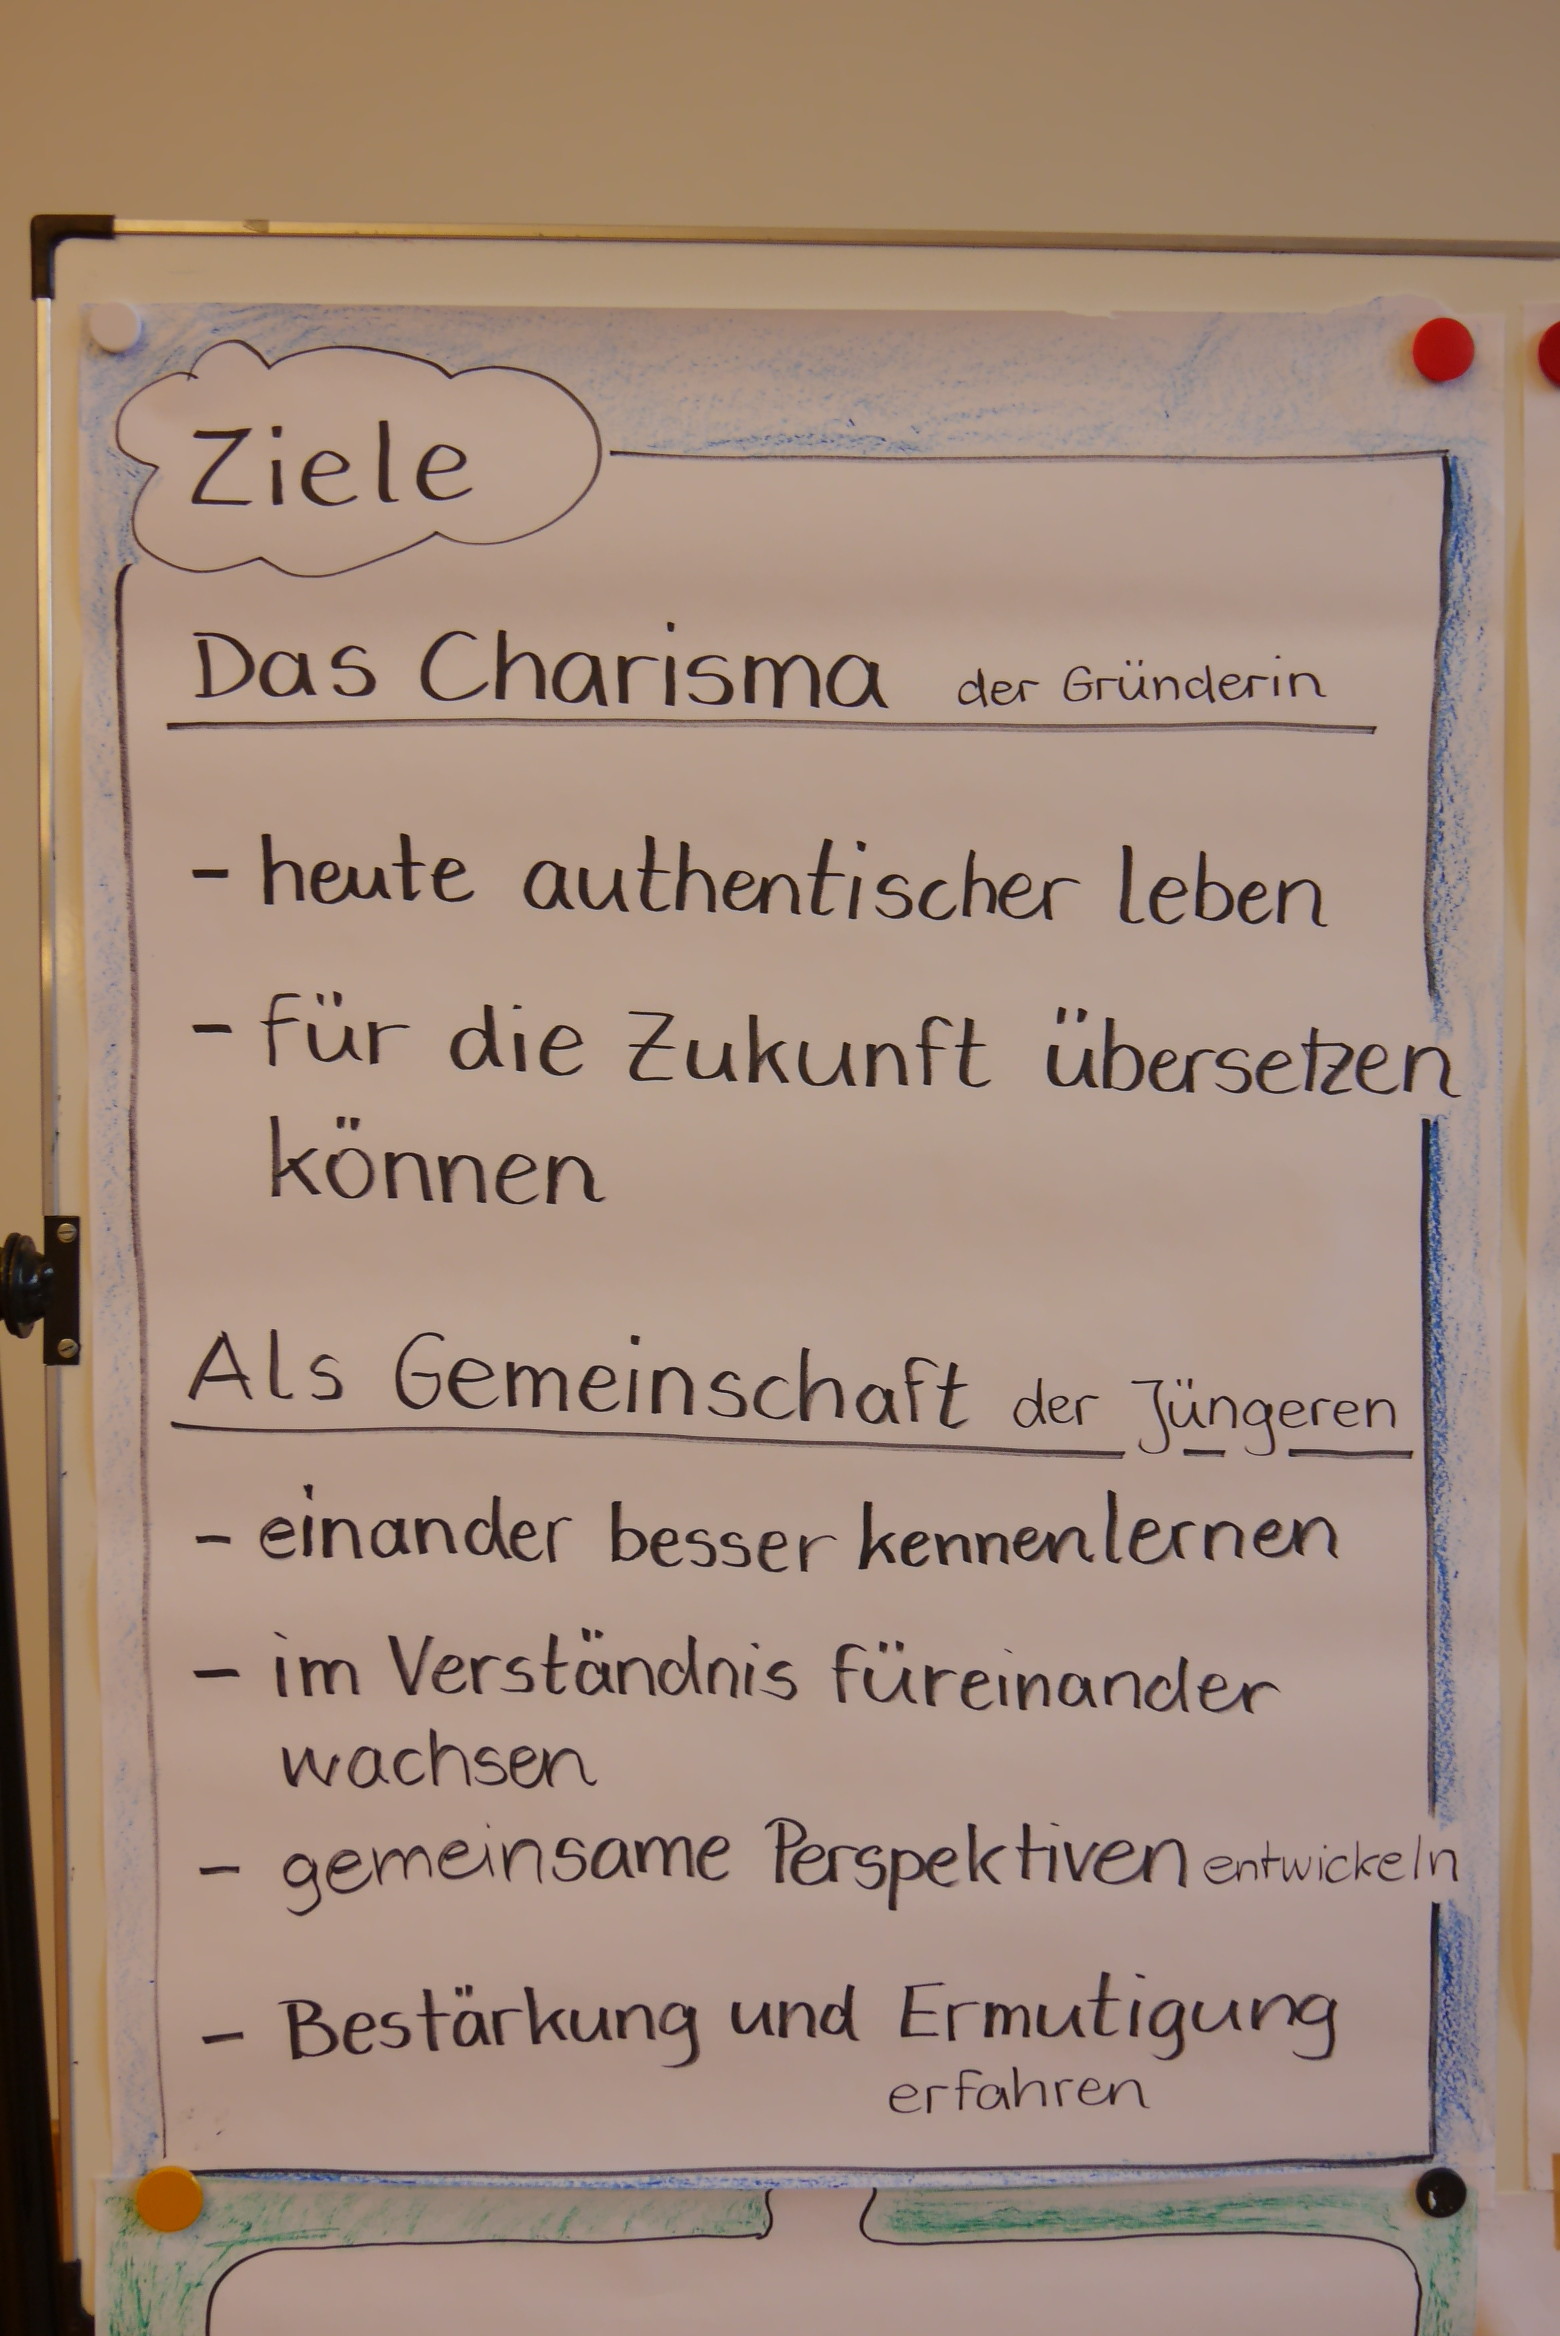 Ziele
Das Charisma der Gründerin
- heute authentischer leben
- für die Zukunft übersetzen
können
Als Gemeinschaft der Jüngeren
- einander besser kennenlernen
- im Verständnis füreinander
wachsen
- gemeinsame Perspektiven entwickeln
- Bestärkung und Ermutigung
erfahren